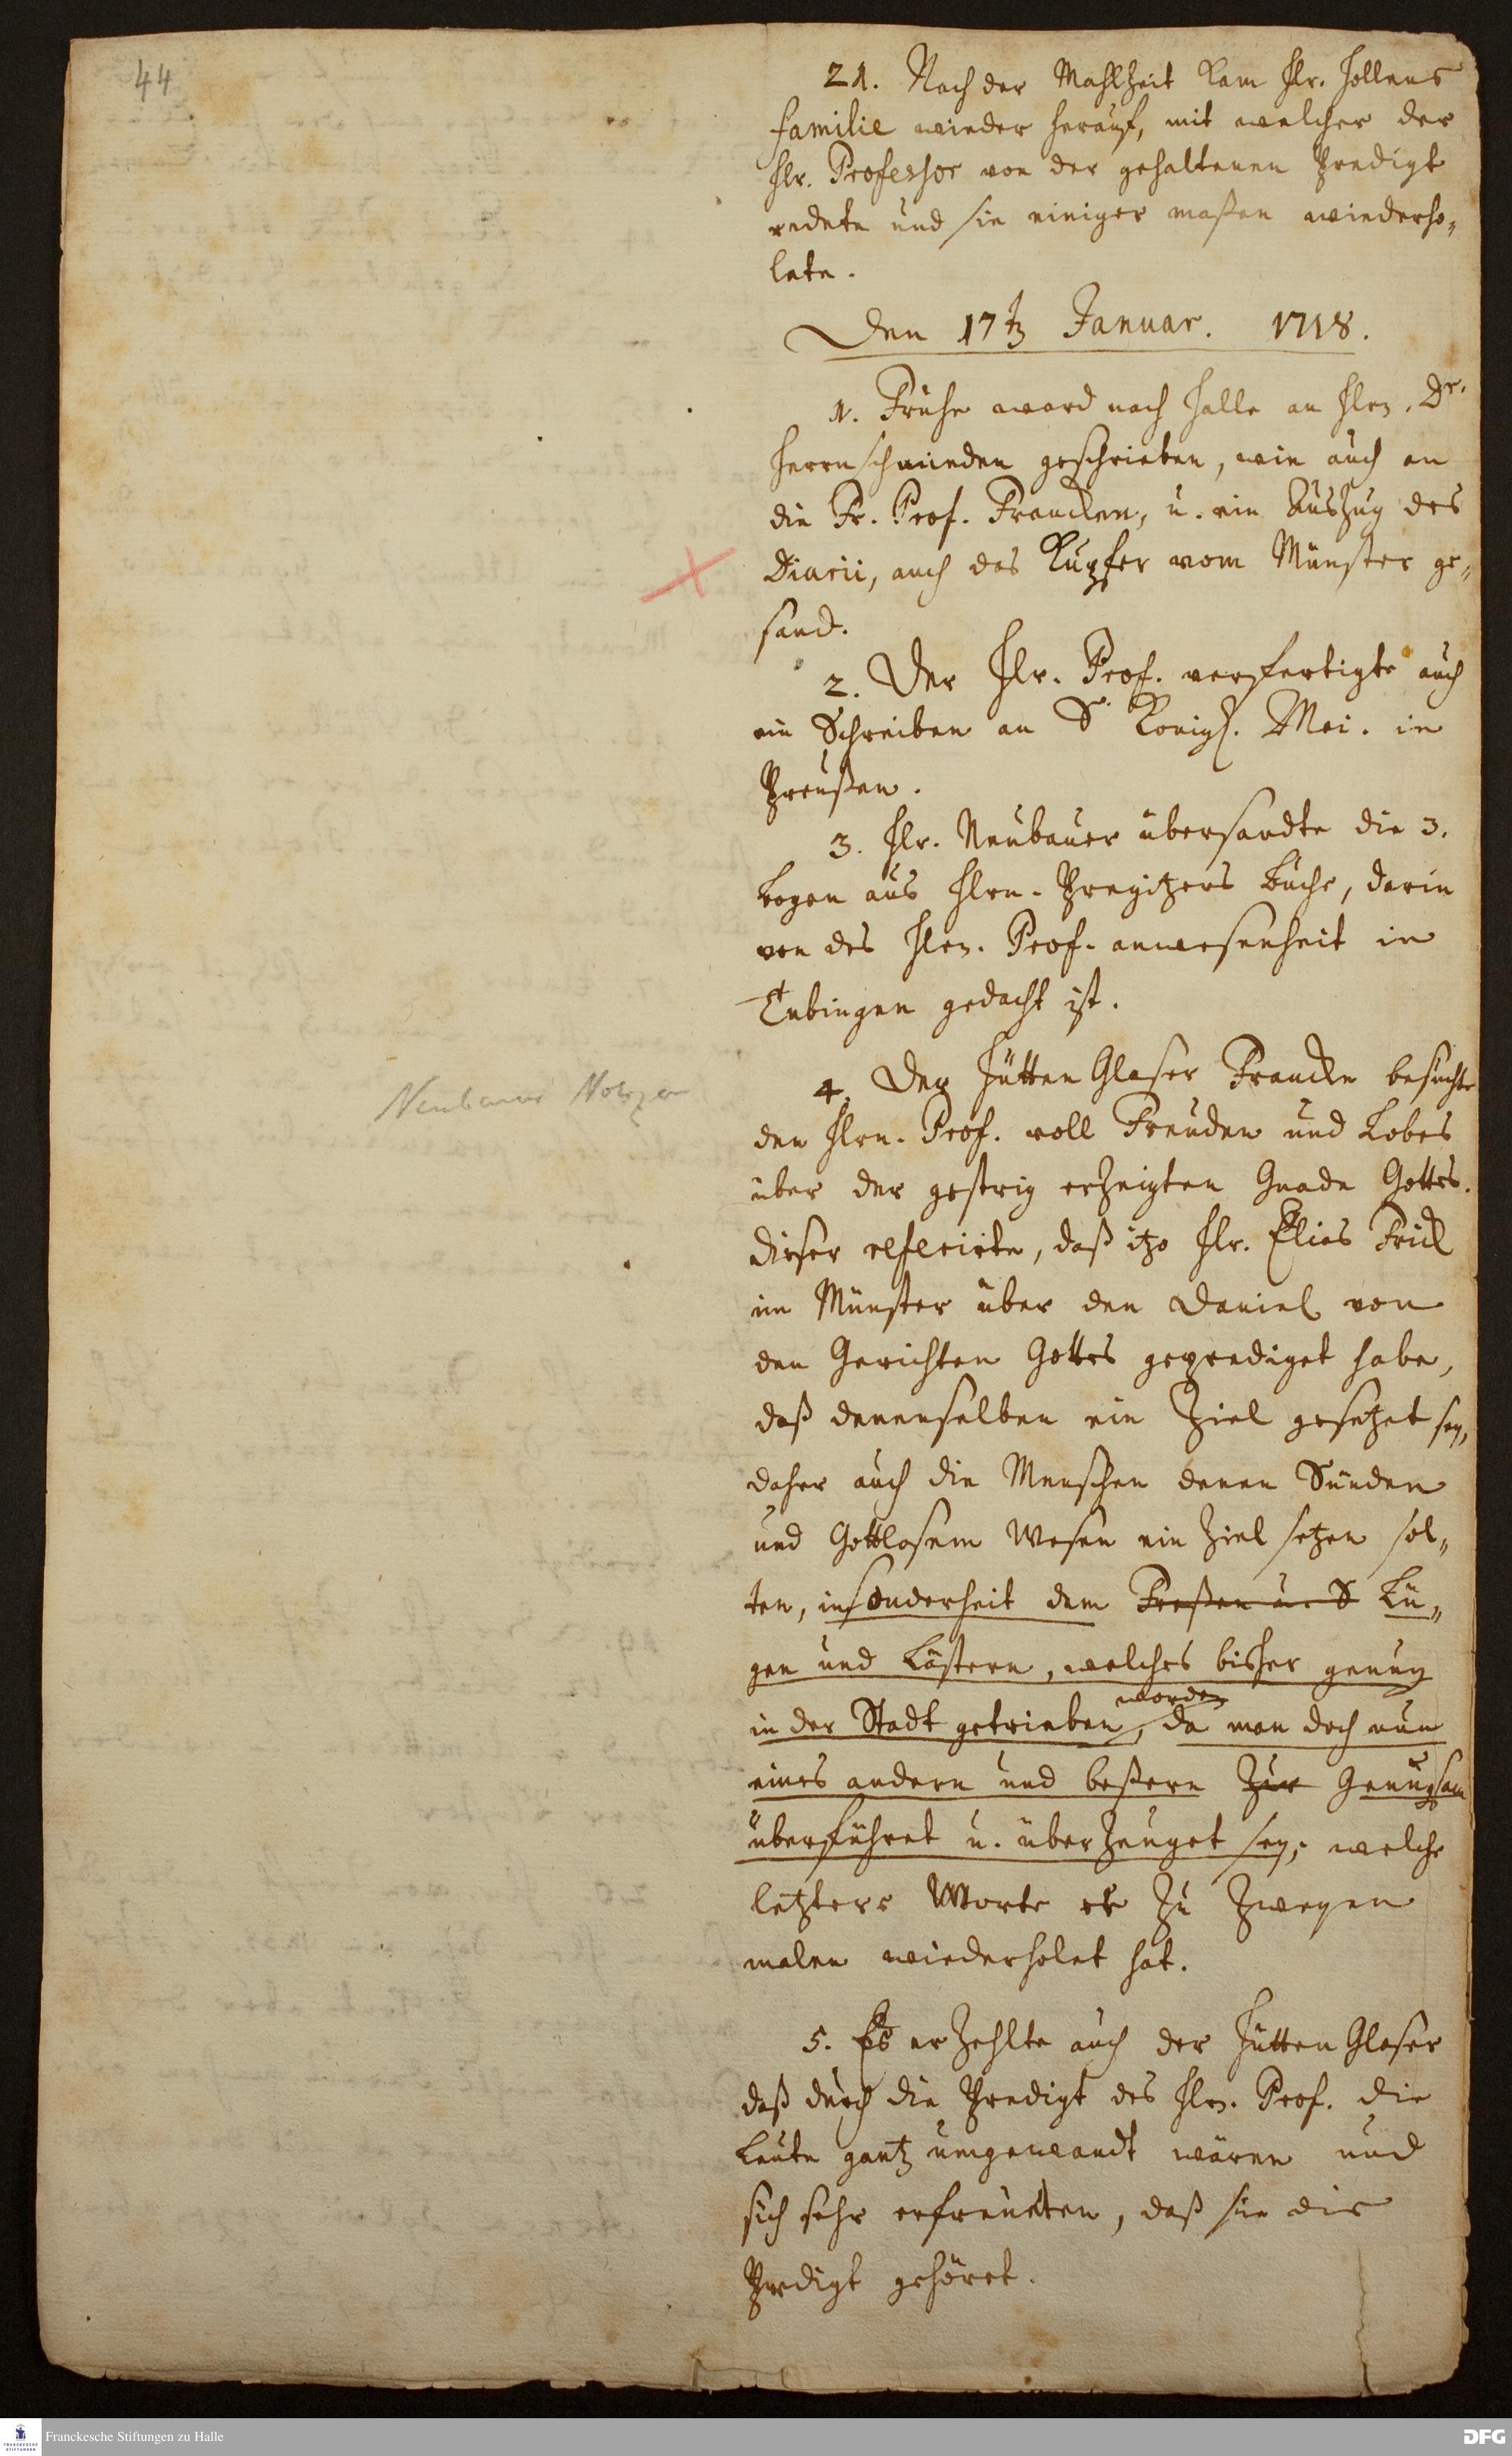 44
21. Nach der Mahlzeit kam Hr. Hollens
familie wieder herauf, mit welcher der
Hr. Professor von der gehaltenen Predigt
redete und sie einiger maßen wiederho„
lete.
Den 17ten Januar. 1718.
1. Frühe ward nach Halle an Hen. Dr.
Herrnschmieden geschrieben, wie auch an
die Fr. Prof. Francken, u. ein Auszug des
Diarii, auch das Kupfer vom Münster ge„
sand.
2. Der Hr. Prof. verfertigte auch
ein Schreiben an Se. Königl. Mai. in
Preußen.
3. Hr. Neubauer übersandte die 3.
bogen aus Hrn. Pregitzers Buche, darin
von des Hen. Prof. anwesenheit in
Tubingen gedacht ist.
Neubauer
4. Der Hütten Glaser Francke besuchte
den Hrn. Prof. voll Freuden und Lobes
über der gestrig erzeigten Gnade Gottes.
dieser referirte, daß itzo Hr. Elias Frick
im Münster über den Daniel von
den Gerichten Gottes geprediget habe,
daß denenselben ein Ziel gesetzet sey,
daher auch die Menschen denen Sünden
und Gottlosem Wesen ein Ziel setzen sol„
ten, insonderheit dem Freßen u. S Lü„
gen und Lästern, welches bisher genug
in der Stadt getrieben worden, da man doch nun
eines andern und beßern zur Genugsam
überführet u. überzeuget sey; welche
letztere Worte er zu zweyen
malen wiederholet hat.
5. Es erzehlte auch der Hütten Glaser
daß durch die Predigt des Hen. Prof. die
Leute gantz umgewandt wären und
sich sehr erfreueten, daß sie die
Predigt gehöret.
Franckesche Stiftungen zu Halle
DFG